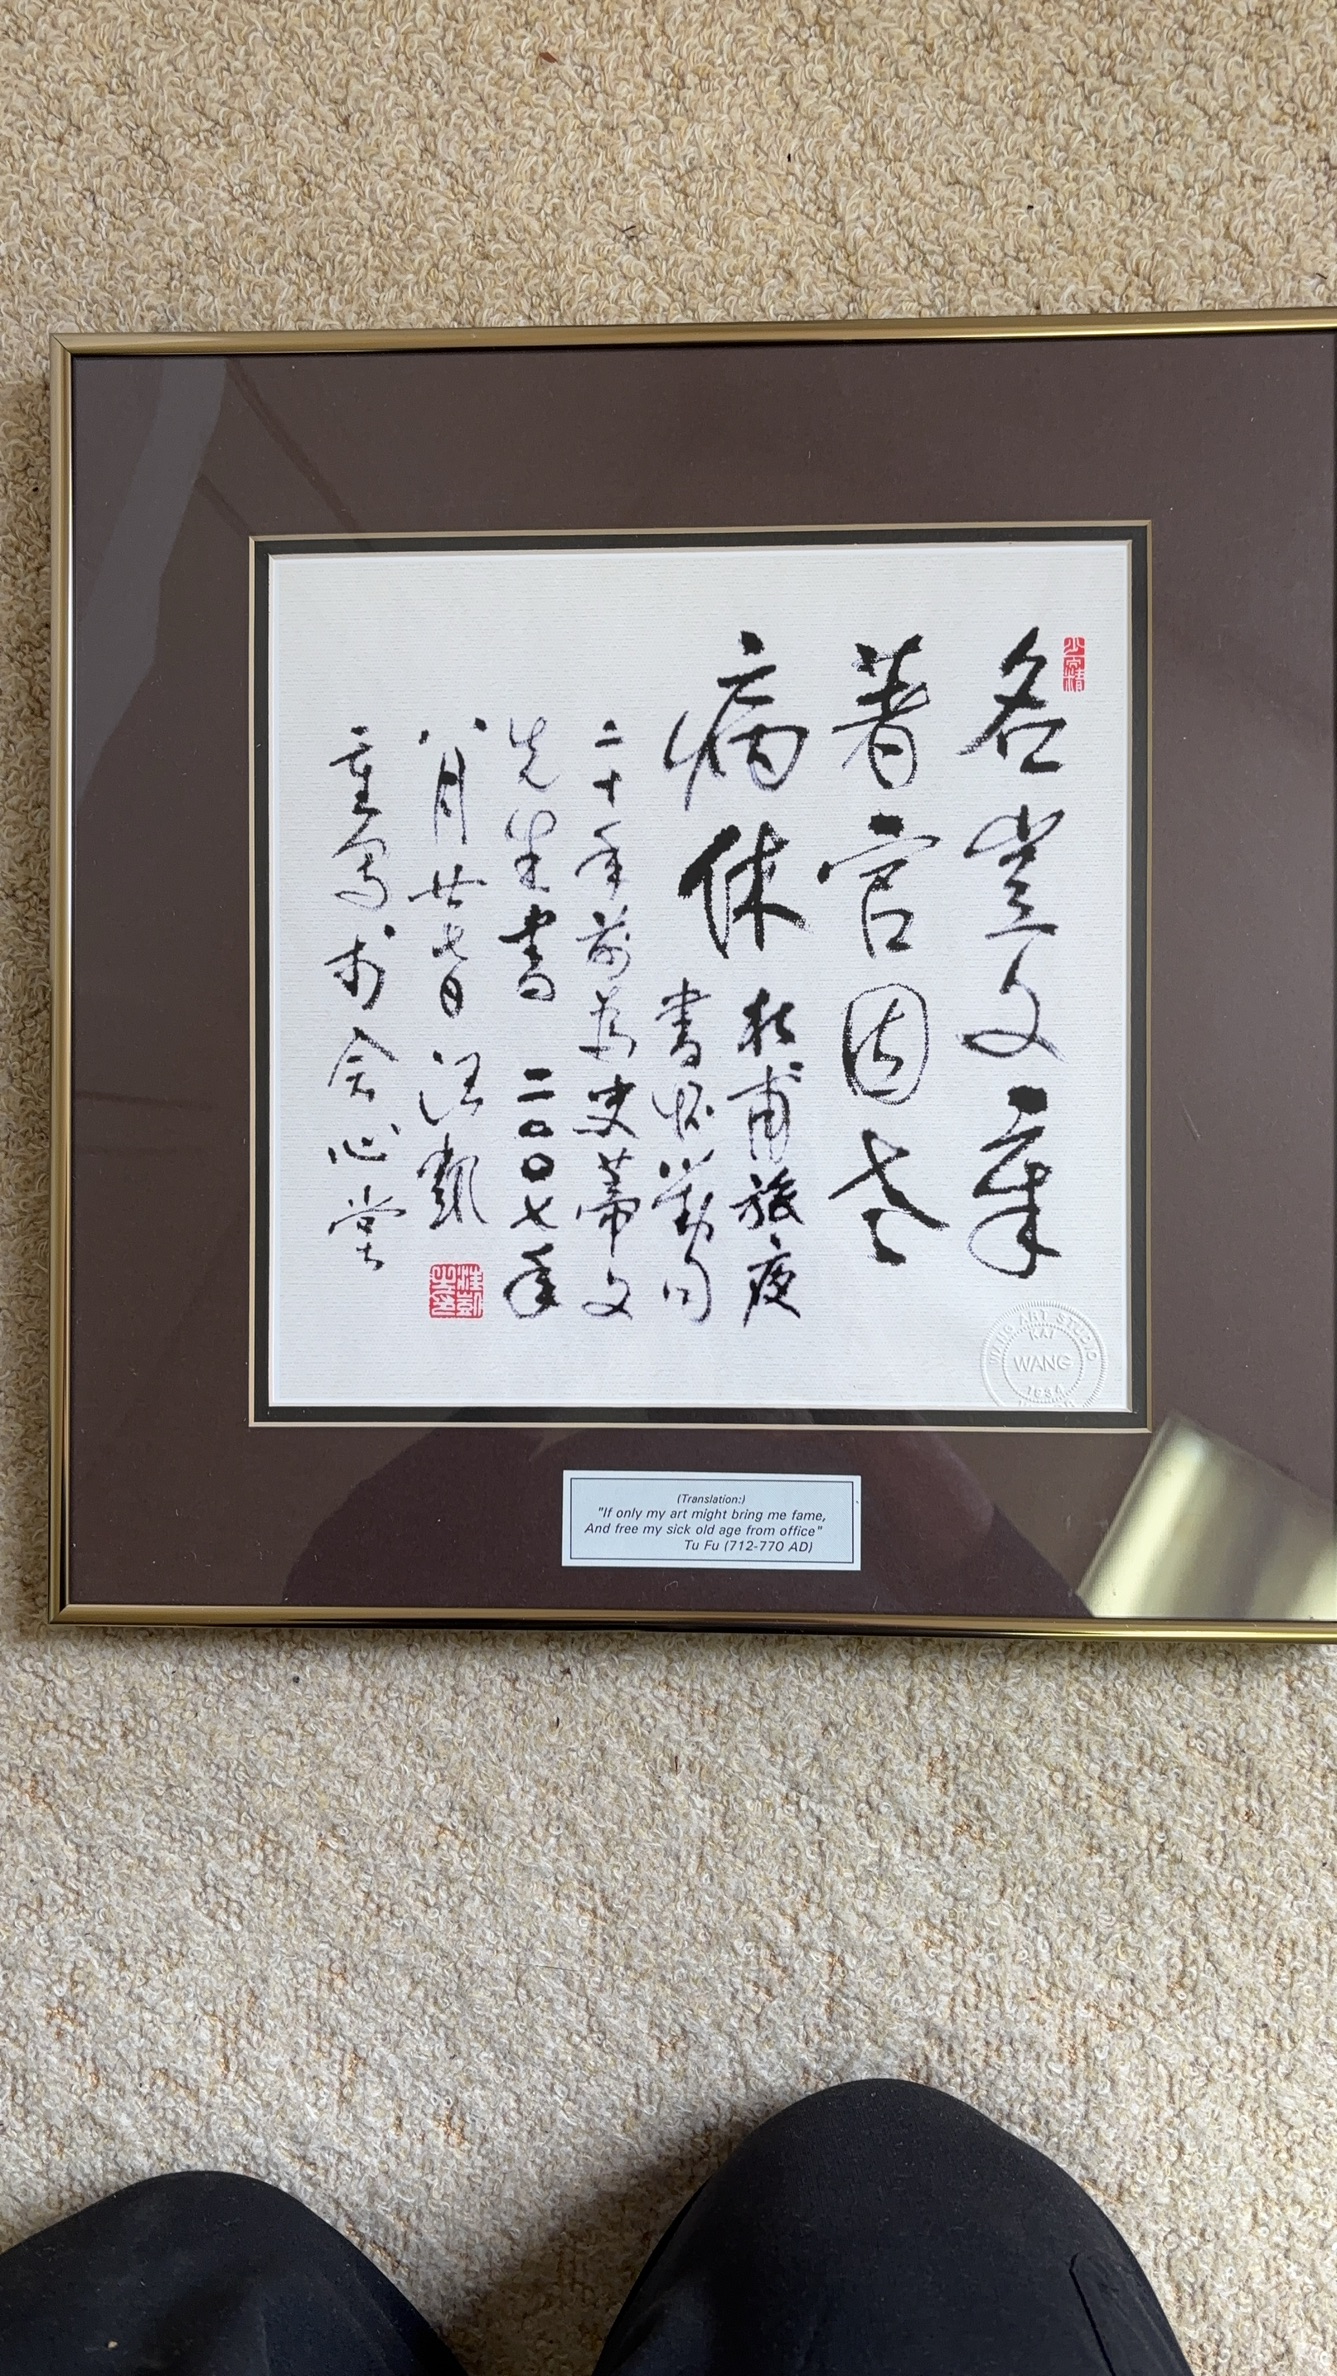 名豈文章
著官因老
病休
杜甫旅夜
書懷兩句
二十年前為史蒂文
先生書 二〇〇七年
八月廿七日 汪凱
重寫於會心堂
WANG ART STUDIO
KAI
WANG
1934
(Translation:)
"If only my art might bring me fame,
And free my sick old age from office"
Tu Fu (712-770 AD)